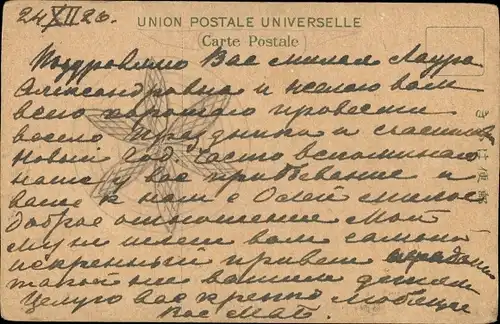 24 XII 26.
UNION POSTALE UNIVERSELLE
Carte Postale
Поздравляю Вас милая Лаура
Александровна и желаю вам
всего хорошего провести
весело Праздники и
новый Год. Часто вспоминаю
наше у вас пребывание и
ваше к нам с Олей милое
доброе отношение Мой
муж шлет вам самый
искренный привет
вашим детям
Целую вас крепко любящая
вас